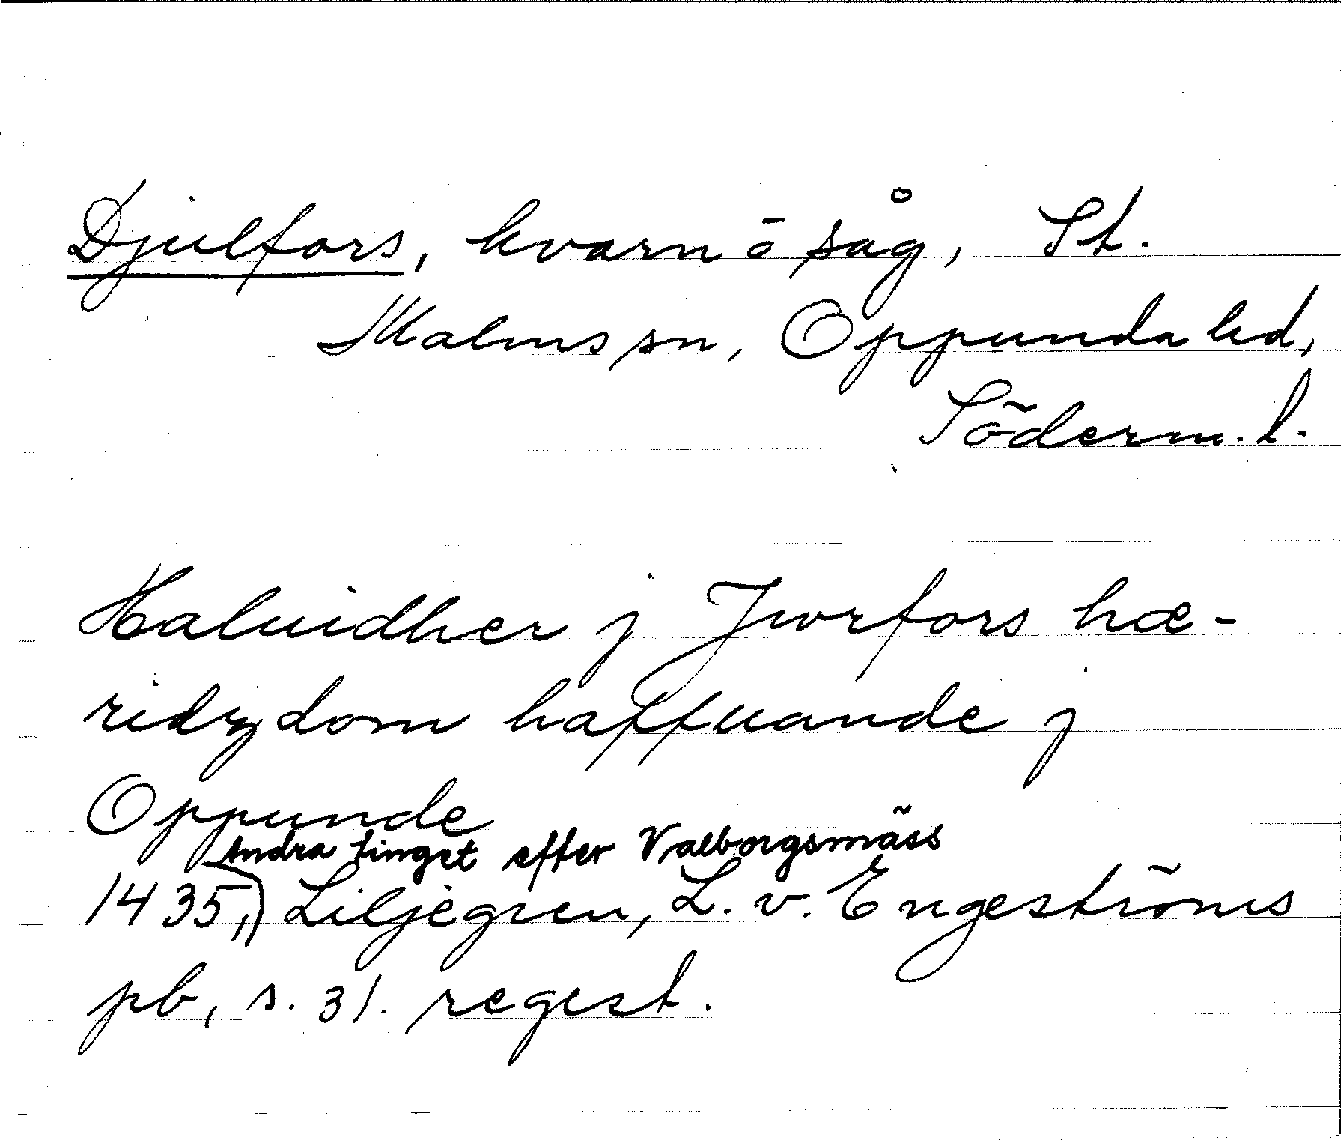 Djulfors, kvarn o såg, St.
Malms sn, Oppunda hd,
Söderm. l.
Haluidher j Jwrfors hæ-
ridzdom haffuande j
Oppunde
Andra tinget efter Valborgsmäss
1435, Liljegren, L. v. Engeströms
pb, s. 31. regest.